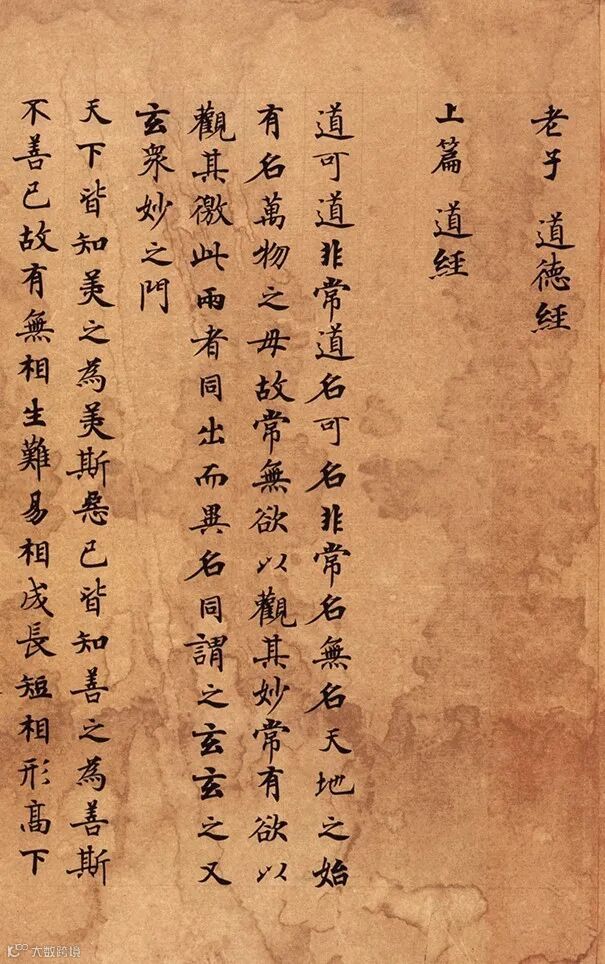 老子 道德經
上篇 道經
道可道非常道名可名非常名無名天地之始
有名萬物之母故常無欲以觀其妙常有欲以
觀其徼此兩者同出而異名同謂之玄玄之又
玄衆妙之門
天下皆知美之為美斯惡已皆知善之為善斯
不善已故有無相生難易相成長短相形高下
大数跨境